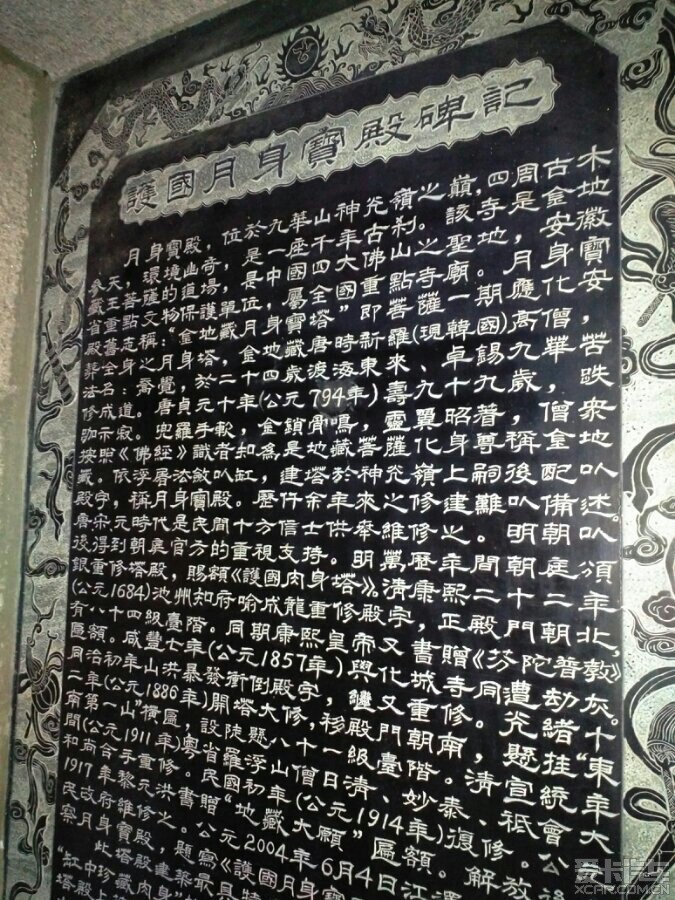 護國月身寶殿碑記
月身寶殿,位於九華山神光嶺之巔,四周古木
參天,環境幽奇,是一座千年古刹。該寺是金地
藏王菩薩的道場,是中國四大佛山之聖地,安徽
省重點文物保護單位,屬全國重點寺廟。月身寶
殿舊志稱:“金地藏月身寶塔”即菩薩一期應化安
葬全身之月身塔,金地藏唐時新羅(現韓國)高僧,
法名:喬覺,於二十四歲渡海東來、卓錫九華,苦
修成道。唐貞元十年(公元794年)壽九十九歲,跌
咖示寂。兜羅手軟,金鎖骨鳴,靈翼昭著,僧衆
按照《佛經》識者知為是地藏菩薩化身尊稱金地
藏。依浮屠法斂以缸,建塔於神光嶺上嗣後配以
殿宇,稱月身寶殿。歷仟余年來之修建難以備述。
唐宋元時代是民間十方信士供奉維修之。明朝以
後得到朝廷官方的重視支持。明萬曆年間朝廷頒
銀重修塔殿,賜額《護國肉身塔》。清康熙二十二年
(公元1684)池州知府喻成龍重修殿宇,正殿門朝北,
有八十四級臺階。同期康熙皇帝又書贈《芬陀普教》
匾額。咸豐七年(公元1857年)與化城寺同遭劫灰。
同治初年山洪暴發衝倒殿宇,繼又重修。光緒十
二年(公元1886年)開塔大修,移殿門朝南,懸挂“東
南第一山”橫匾,設陡懸八十一級臺階。清宣統年
間(公元1911年)粵省羅浮山僧日清、妙泰、祇會大
和尚合手重修。民國初年(公元1914年)復修。公
1917年黎元洪書贈“地藏大願”匾額。解放後
民政府維修之。公元2004年6月4日江澤
察月身寶殿,題寫《護國月身寶
此塔殿建築最具特
缸中珍藏肉身
塔殿上
XCAR.COM.CN